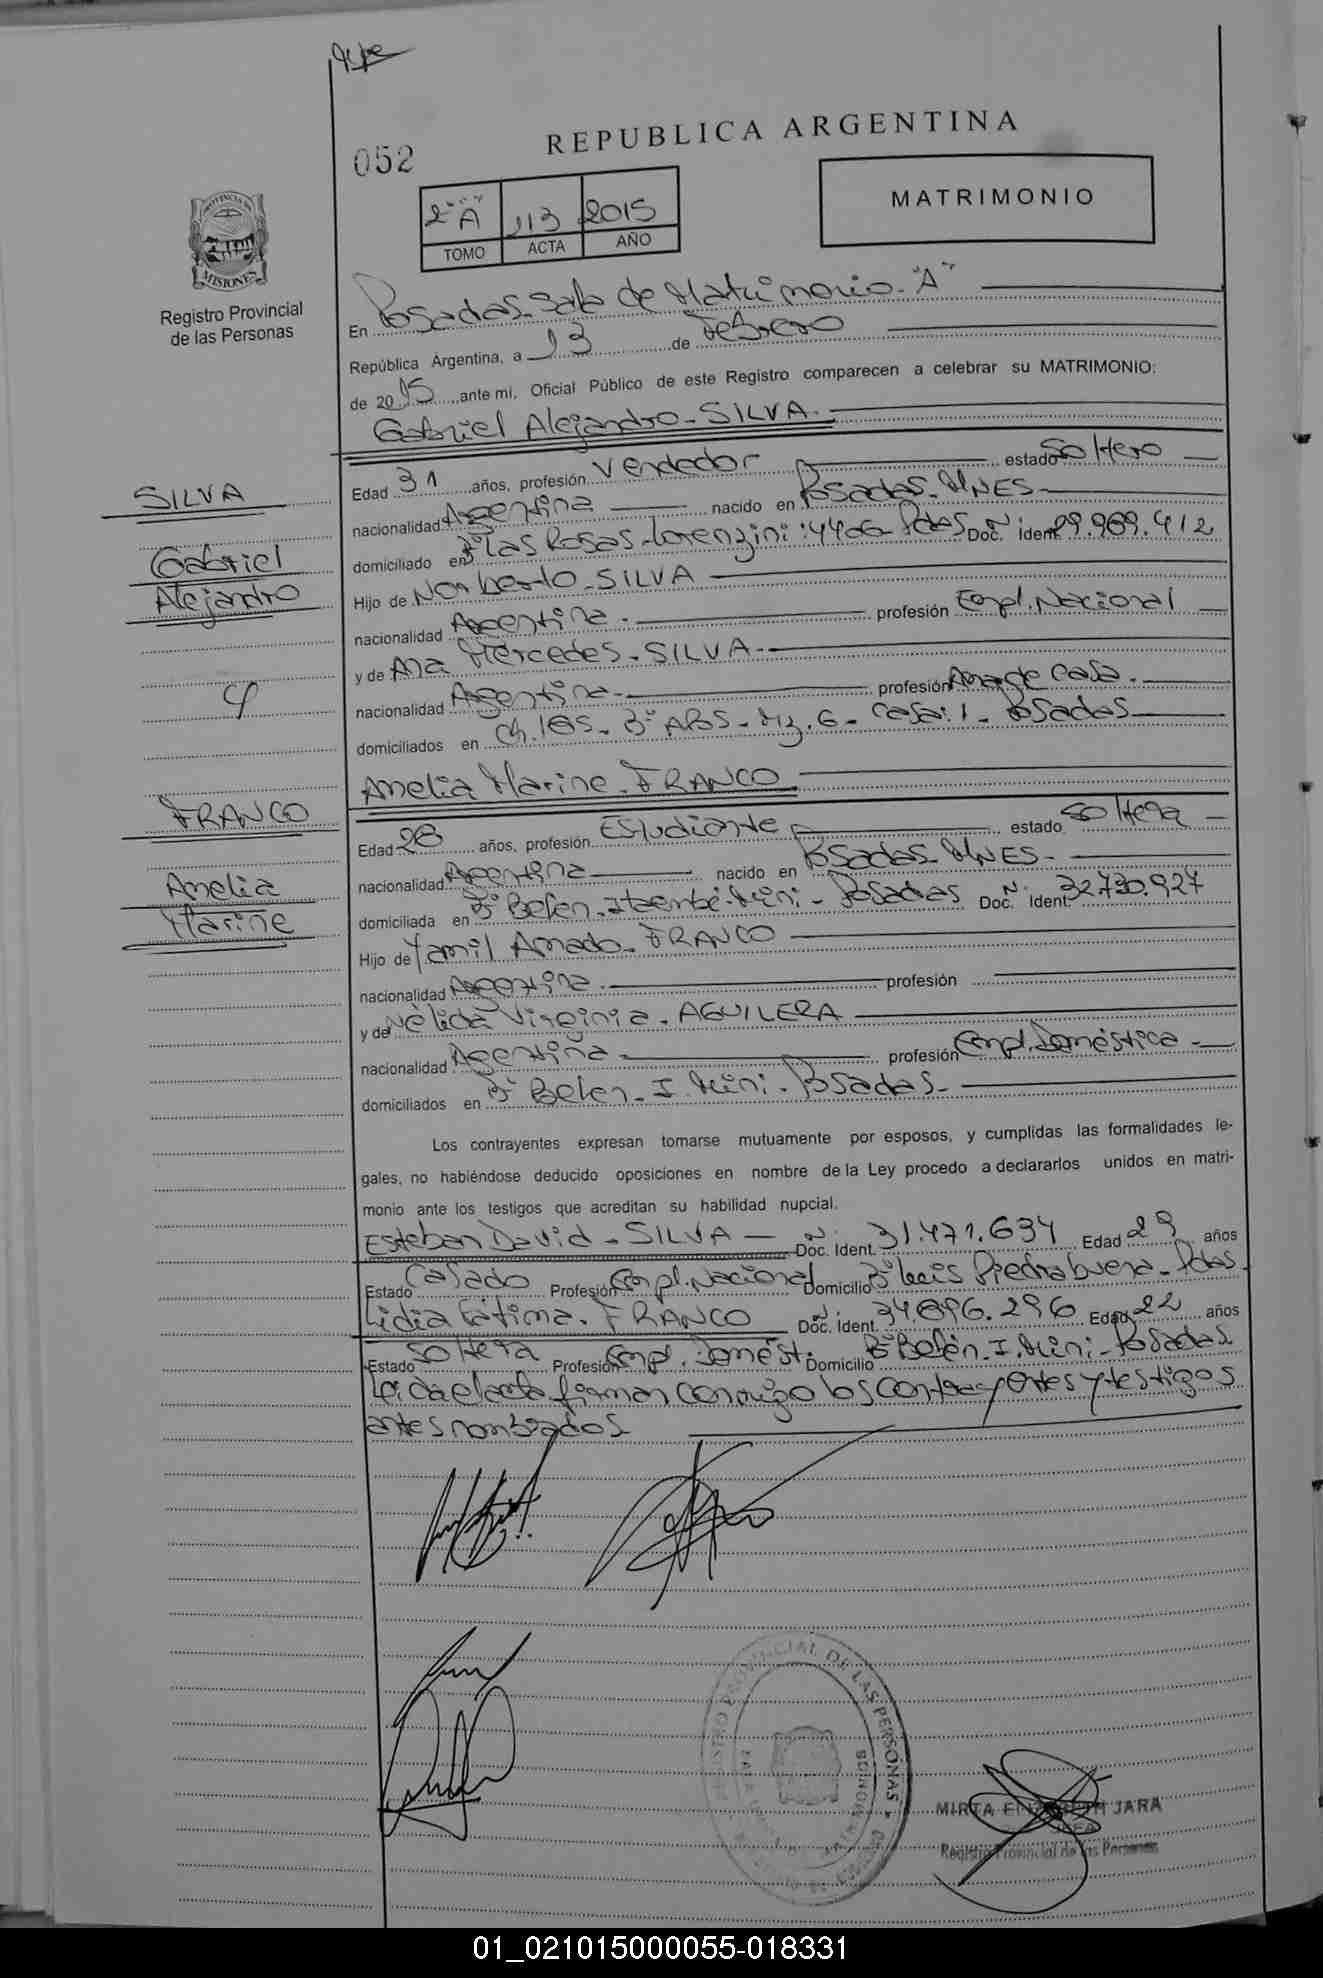 052
REPUBLICA ARGENTINA
MATRIMONIO
2° "A" 113 2015
TOMO ACTA AÑO
PROVINCIA DE
MISIONES
Registro Provincial
de las Personas
En Posadas-Sala de Matrimonio-"A"
República Argentina, a 13 de Febrero
de 2015, ante mi, Oficial Público de este Registro comparecen a celebrar su MATRIMONIO:
Gabriel Alejandro-SILVA.
SILVA
Gabriel
Alejandro
Edad 31 años, profesión Vendedor estado Soltero
nacionalidad Argentina nacido en Posadas-MNES-
domiciliado en B° Las Rosas-Lorenzini:4406-Pdas Doc. N Ident 29.969.412
Hijo de Norberto-SILVA
nacionalidad Argentina. profesión Empl. Nacional
y de Ana Mercedes-SILVA.
nacionalidad Argentina. profesión Ama de Casa.
domiciliados en Ch.185-B° APOS-Mz.6-Casa:1-Posadas
Amelia Marine. FRANCO
FRANCO
Amelia
Marine
Edad 28 años, profesión Estudiante estado Soltera
nacionalidad Argentina nacido en Posadas-MNES-
domiciliada en B° Belen-Itaembé-Mini-Posadas Doc. N Ident 32.730.927
Hijo de Yamil Amado-FRANCO
nacionalidad Argentina. profesión
y de Nélida Virginia. AGUILERA
nacionalidad Argentina. profesión Empl. Doméstica
domiciliados en B° Belen-I. Mini-Posadas-
Los contrayentes expresan tomarse mutuamente por esposos, y cumplidas las formalidades le-
gales, no habiéndose deducido oposiciones en nombre de la Ley procedo a declararlos unidos en matri-
monio ante los testigos que acreditan su habilidad nupcial.
Esteban David-SILVA Doc. N Ident. 31.471.634 Edad 29 años
Estado Casado Profesión Empl. Nacional Domicilio B° Luis Piedrabuena-Pdas
Lidia Fátima. FRANCO Doc. N Ident. 34.896.296 Edad 22 años
Estado Soltera Profesión Empl. Domést. Domicilio B° Belén-I. Mini-Posadas
Leida el acta firman conmigo los contrayentes y testigos
antes nombrados
REGISTRO PROVINCIAL DE LAS PERSONAS
MIRTA ELIZABETH JARA
JEFA
Registro Provincial de las Personas
01_021015000055-018331